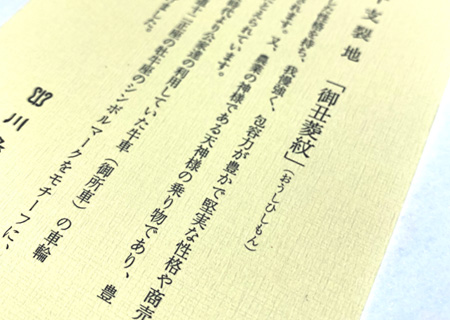 支裂地 「御丑菱紋」(おうしひしもん)
た性格を持ち、我慢強く、包容力が豊かで堅実な性格や商売
されます。又、農業の神様である天神様の乗り物であり、豊
えられています。
時代より公家達の利用していた牛車(御所車)の車輪
十二正座の牡牛座のシンボルマークをモチーフに、
ました。
川